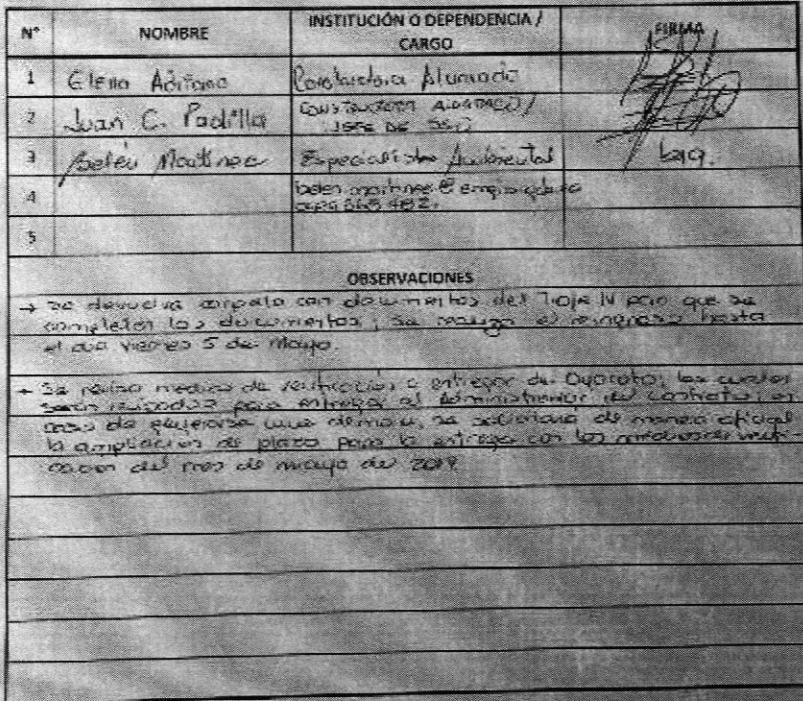 N° NOMBRE INSTITUCIÓN O DEPENDENCIA / CARGO FIRMA
1 Elena Adriano Constructora Alvarado
2 Juan C. Padilla CONSTRUCTORA ALVARADO / JEFE DE SSO
3 Belén Martínez Especialista Ambiental
4 belen.martinez
5
OBSERVACIONES
→ se devuelve carpeta con documentos del Troje IV para que se
completen los documentos, se realiza el reingreso hasta
el día viernes 5 de Mayo.
→ Se revisa medios de verificación a entregar de Oyacoto, los cuales
serán revisados para entregar al Administrador del contrato, en
caso de generarse una demora, se solicitará de manera oficial
la ampliación de plazo para la entrega con los medios de verifi-
cación del mes de mayo de 2017.